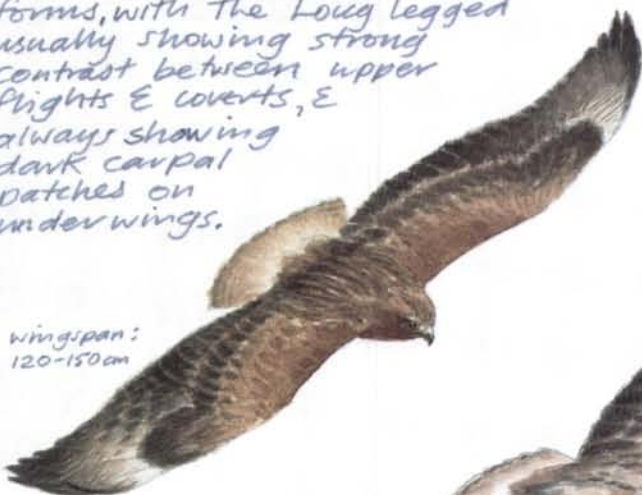 forms, with the Long legged
usually showing strong
contrast between upper
flights & coverts, &
always showing
dark carpal
patches on
underwings.
wingspan:
120-150cm